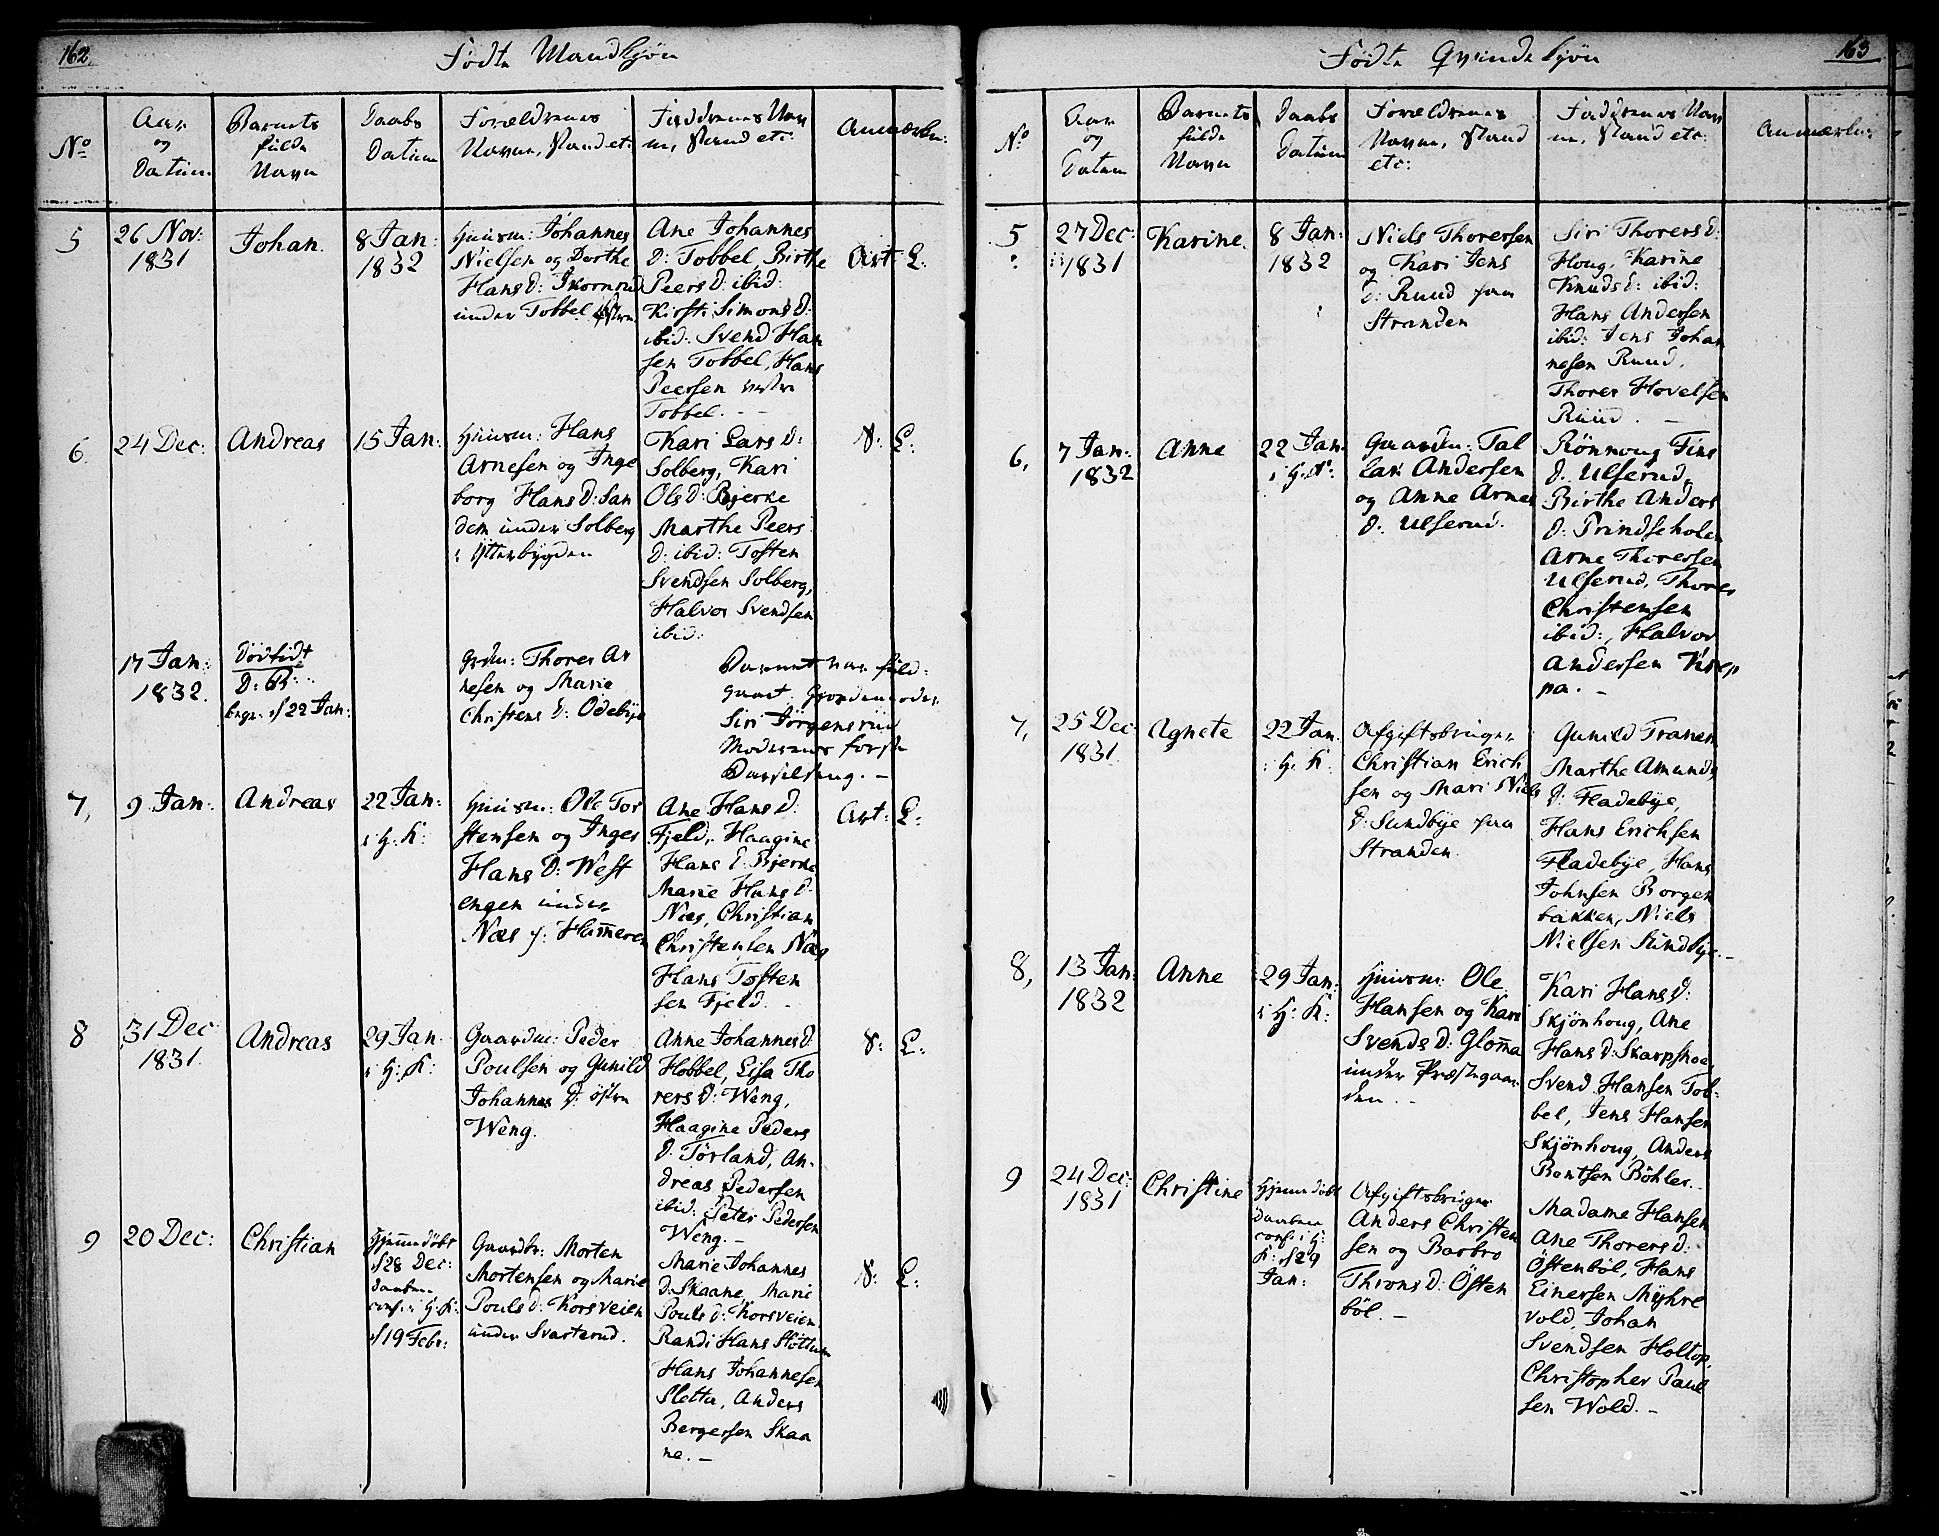 162.
Födte Mandkjøn
No
Aar
og
Datum
Barnets
fulde
Navn
Daabs
Datum
Forældrenes
Navne, Stand etc:
Faddernes Nav
ne, Stand etc:
Anmærkn:
5
26 Nov:
1831
Johan
8 Jan:
1832
Huusm: Johannes
Nielsen og Dorthe
Hans D: Skornrud
under Tobbel østre
Ane Johannes
D: Tobbel Birthe
Peers D: ibid:
Kirsti Simons D:
ibid: Svend Han
sen Tobbel, Hans
Peersen vestre
Tobbel. - -
Aist L:
6.
24 Dec:
Andreas
15 Jan:
Huusm: Hans
Arnesen og Inge
borg Hans D: San
den under Solberg
i Ytterbygden
Kari Lars D:
Solberg, Kari
Ols D: Bjerke
Marthe Peers
D: ibid: Tosten
Svendsen Solberg,
Halvor Svendsen
ibid:
8: L:
17 Jan:
1832.
Dødfødt
D: B:
begr: d/22 Jan:
Grdm: Thorer Ar
nesen og Marie
Christens D: Odebye
Barnet var fuld-
gaaet. Gjordemoder
Siri Jörgensrud
Moderens første
Barselseng. -
7,
9 Jan:
Andreas
22 Jan:
i H: K:
Huusm: Ole Tor
stensen og Inger
Hans D: West
engen under
Næs i Hammeren
Ane Hans D:
Fjeld, Haagine
Hans D: Bjerke
Marie Hans D:
Næs, Christian
Christensen Næs
Hans Tosten
sen Fjeld. -
Art: L:
8
31 Dec
1831.
Andreas
29 Jan:
i H: K:
Gaardm: Peder
Poulsen og Gunild
Johannes D: östre
Weng.
Anne Johannes D:
Hobbel, Lisa Tho
rers D: Weng,
Haagine Peders
D: Törland, An-
dreas Pedersen
ibid: Peter Pedersen
Weng. -
8: L:
9
20 Dec:
Christian
Hjemmedöbt
d/28 Dec:
Daaben
conf: i H: K:
d/19 Febr:
Gaardbr: Morten
Mortensen og Marie
Pouls D: Korsveien
under Svarterud.
Marie Johannes
D: Skaane, Marie
Pouls D: Korsveien
Randi Hans Slöttum
Hans Johannesen
Sletta, Anders
Bergersen Skaa
ne. -
8: L:
163
Födte Qvindekjøn
No
Aar
og
Datum
Barnets
fulde
Navn
Daabs
Datum
Forældrenes
Navne, Stand
etc:
Faddernes Nav
ne, Stand etc:
Anmærkn:
5
27 Dec:
1831
Karine.
8 Jan:
1832
Niels Thoressen
og Kari Jens
D: Ruud paa
Stranden
Siri Thorers D:
Houg, Karine
Knuds D: ibid:
Hans Andersen
ibid: Jens Johan
nesen Ruud,
Thorer Hovelsen
Ruud. -
6,
7 Jan:
1832
Anne
22 Jan:
i H: K:
Gaardm: Tal
lak Andersen
og Anne Arnes
D: Ulserud.
Rönnoug Fins
D: Ulserud,
Birthe Anders
D: Prindsehole
Arne Thoressen
Ulserud, Thores
Christensen
ibid:, Halvor
Andersen Krep
pa. -
7,
25 Dec
1831
Agnete
22 Jan.
i H: K:
Afgiftsbruger
Christian Erich
sen og Mari Niels
D: Sundbye paa
Stranden.
Gunild Tranem
Marthe Amunds
D: Fladebye,
Hans Erichsen
Fladebye, Hans
Johnsen Borgen
bakken, Niels
Nielsen Sundbye. -
8,
13 Jan:
1832
Anne
29 Jan:
i H: K:
Huusm: Ole
Hansen og Kari
Svends D: Glomma
under Præstegaar
den. -
Kari Hans D:
Skjönhoug, Ane
Hans D: Skarpsnoe,
Svend Hansen Tob-
bel, Jens Hansen
Skjönhoug, Anders
Bentsen Böhler. -
9
24 Dec:
1831
Christine
Hjemmedöbt
Daaben
conf: i H:
K: d/29
Jan:
Afgiftsbruger
Anders Christen
sen og Barbro
Throns D: Östen
böl. -
Madame Hansen
Ane Thorers D:
Östenböl, Hans
Einersen Myhre
vold, Johan
Svendsen Holtop,
Christopher Paul
sen Wold. -